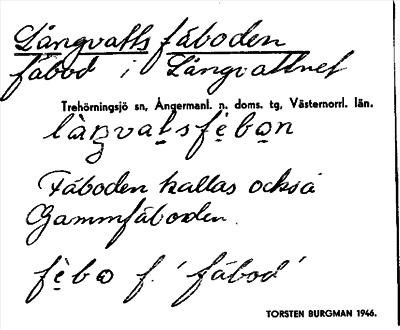 Långvatts fäboden
fäbod i Långvattnet
Trehörningsjö sn, Ångermanl. n. doms. tg, Västernorrl. län.
làŋvat̬sfè̬bo̬n
Fäboden kallas också
Gammfäboden.
fè̬bo̬ f. 'fäbod'
TORSTEN BURGMAN 1946.